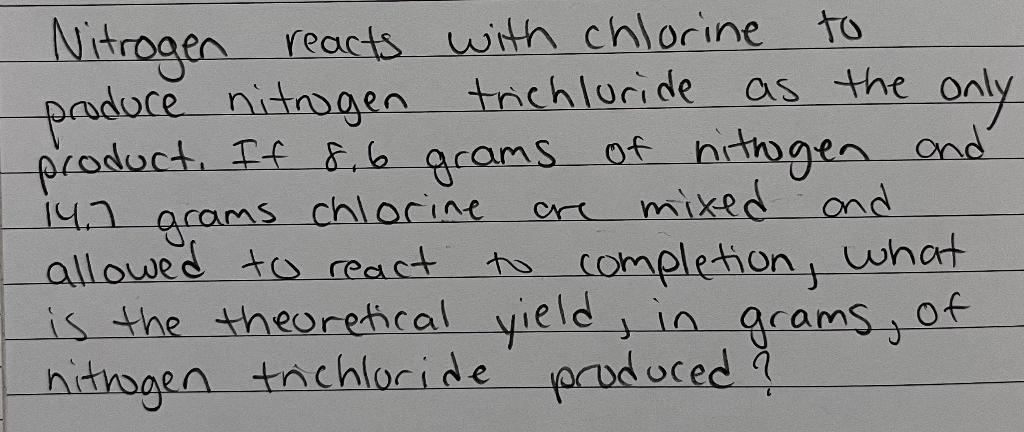 Nitrogen reacts with chlorine to
produce nitrogen trichloride as the only
product. If 8.6 grams of nitrogen and
14.7 grams chlorine are mixed and
allowed to react to completion, what
is the theoretical yield, in grams, of
nitrogen trichloride produced?